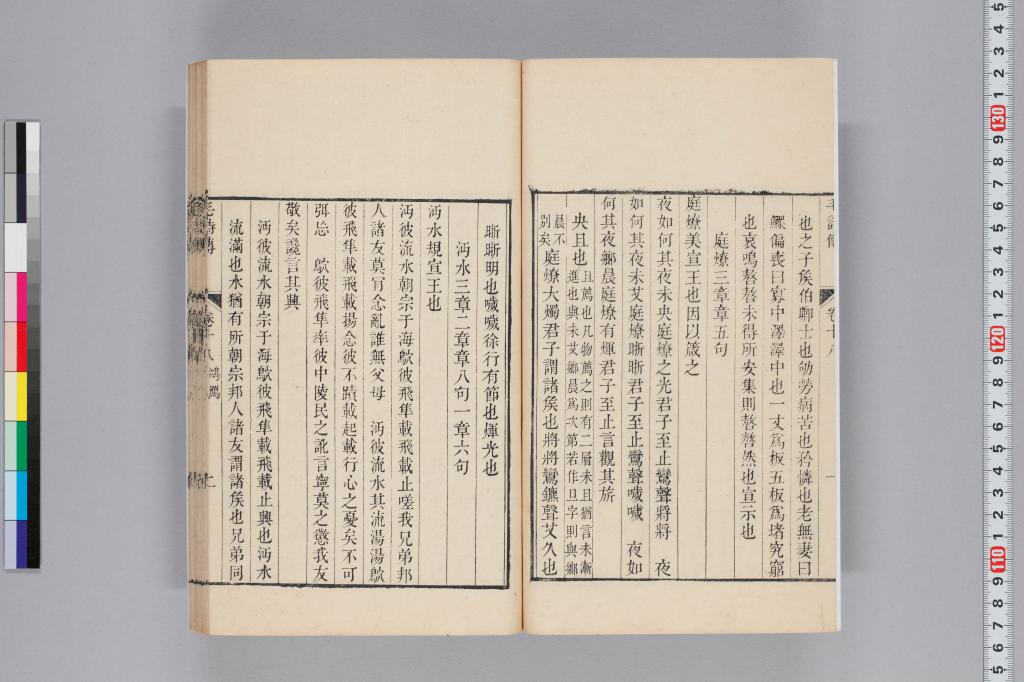 毛詩傳
卷十八
一
也之子矦伯卿士也劬勞病苦也矜憐也老無妻曰
鰥偏喪曰寡中澤澤中也一丈爲板五板爲堵究窮
也哀鳴嗸嗸未得所安集則嗸嗸然也宣示也
庭燎三章章五句
庭燎美宣王也因以箴之
夜如何其夜未央庭燎之光君子至止鸞聲將將　夜
如何其夜未艾庭燎晣晣君子至止鸞聲噦噦　夜如
何其夜鄉晨庭燎有煇君子至止言觀其旂
央且也且薦也凡物薦之則有二層未且猶言未漸
進也與未艾鄉晨爲次第若作旦字則與鄉
晨不
別矣庭燎大燭君子謂諸矦也將將鸞鑣聲艾久也
晣晣明也噦噦徐行有節也煇光也
沔水三章二章章八句一章六句
沔水規宣王也
沔彼流水朝宗于海鴥彼飛隼載飛載止嗟我兄弟邦
人諸友莫肎念亂誰無父母　沔彼流水其流湯湯鴥
彼飛隼載飛載揚念彼不蹟載起載行心之憂矣不可
弭忘　鴥彼飛隼率彼中陵民之訛言寧莫之懲我友
敬矣讒言其興
沔彼流水朝宗于海鴥彼飛隼載飛載止興也沔水
流滿也水猶有所朝宗邦人諸友謂諸矦也兄弟同
毛詩傳
卷十八
鴻鴈